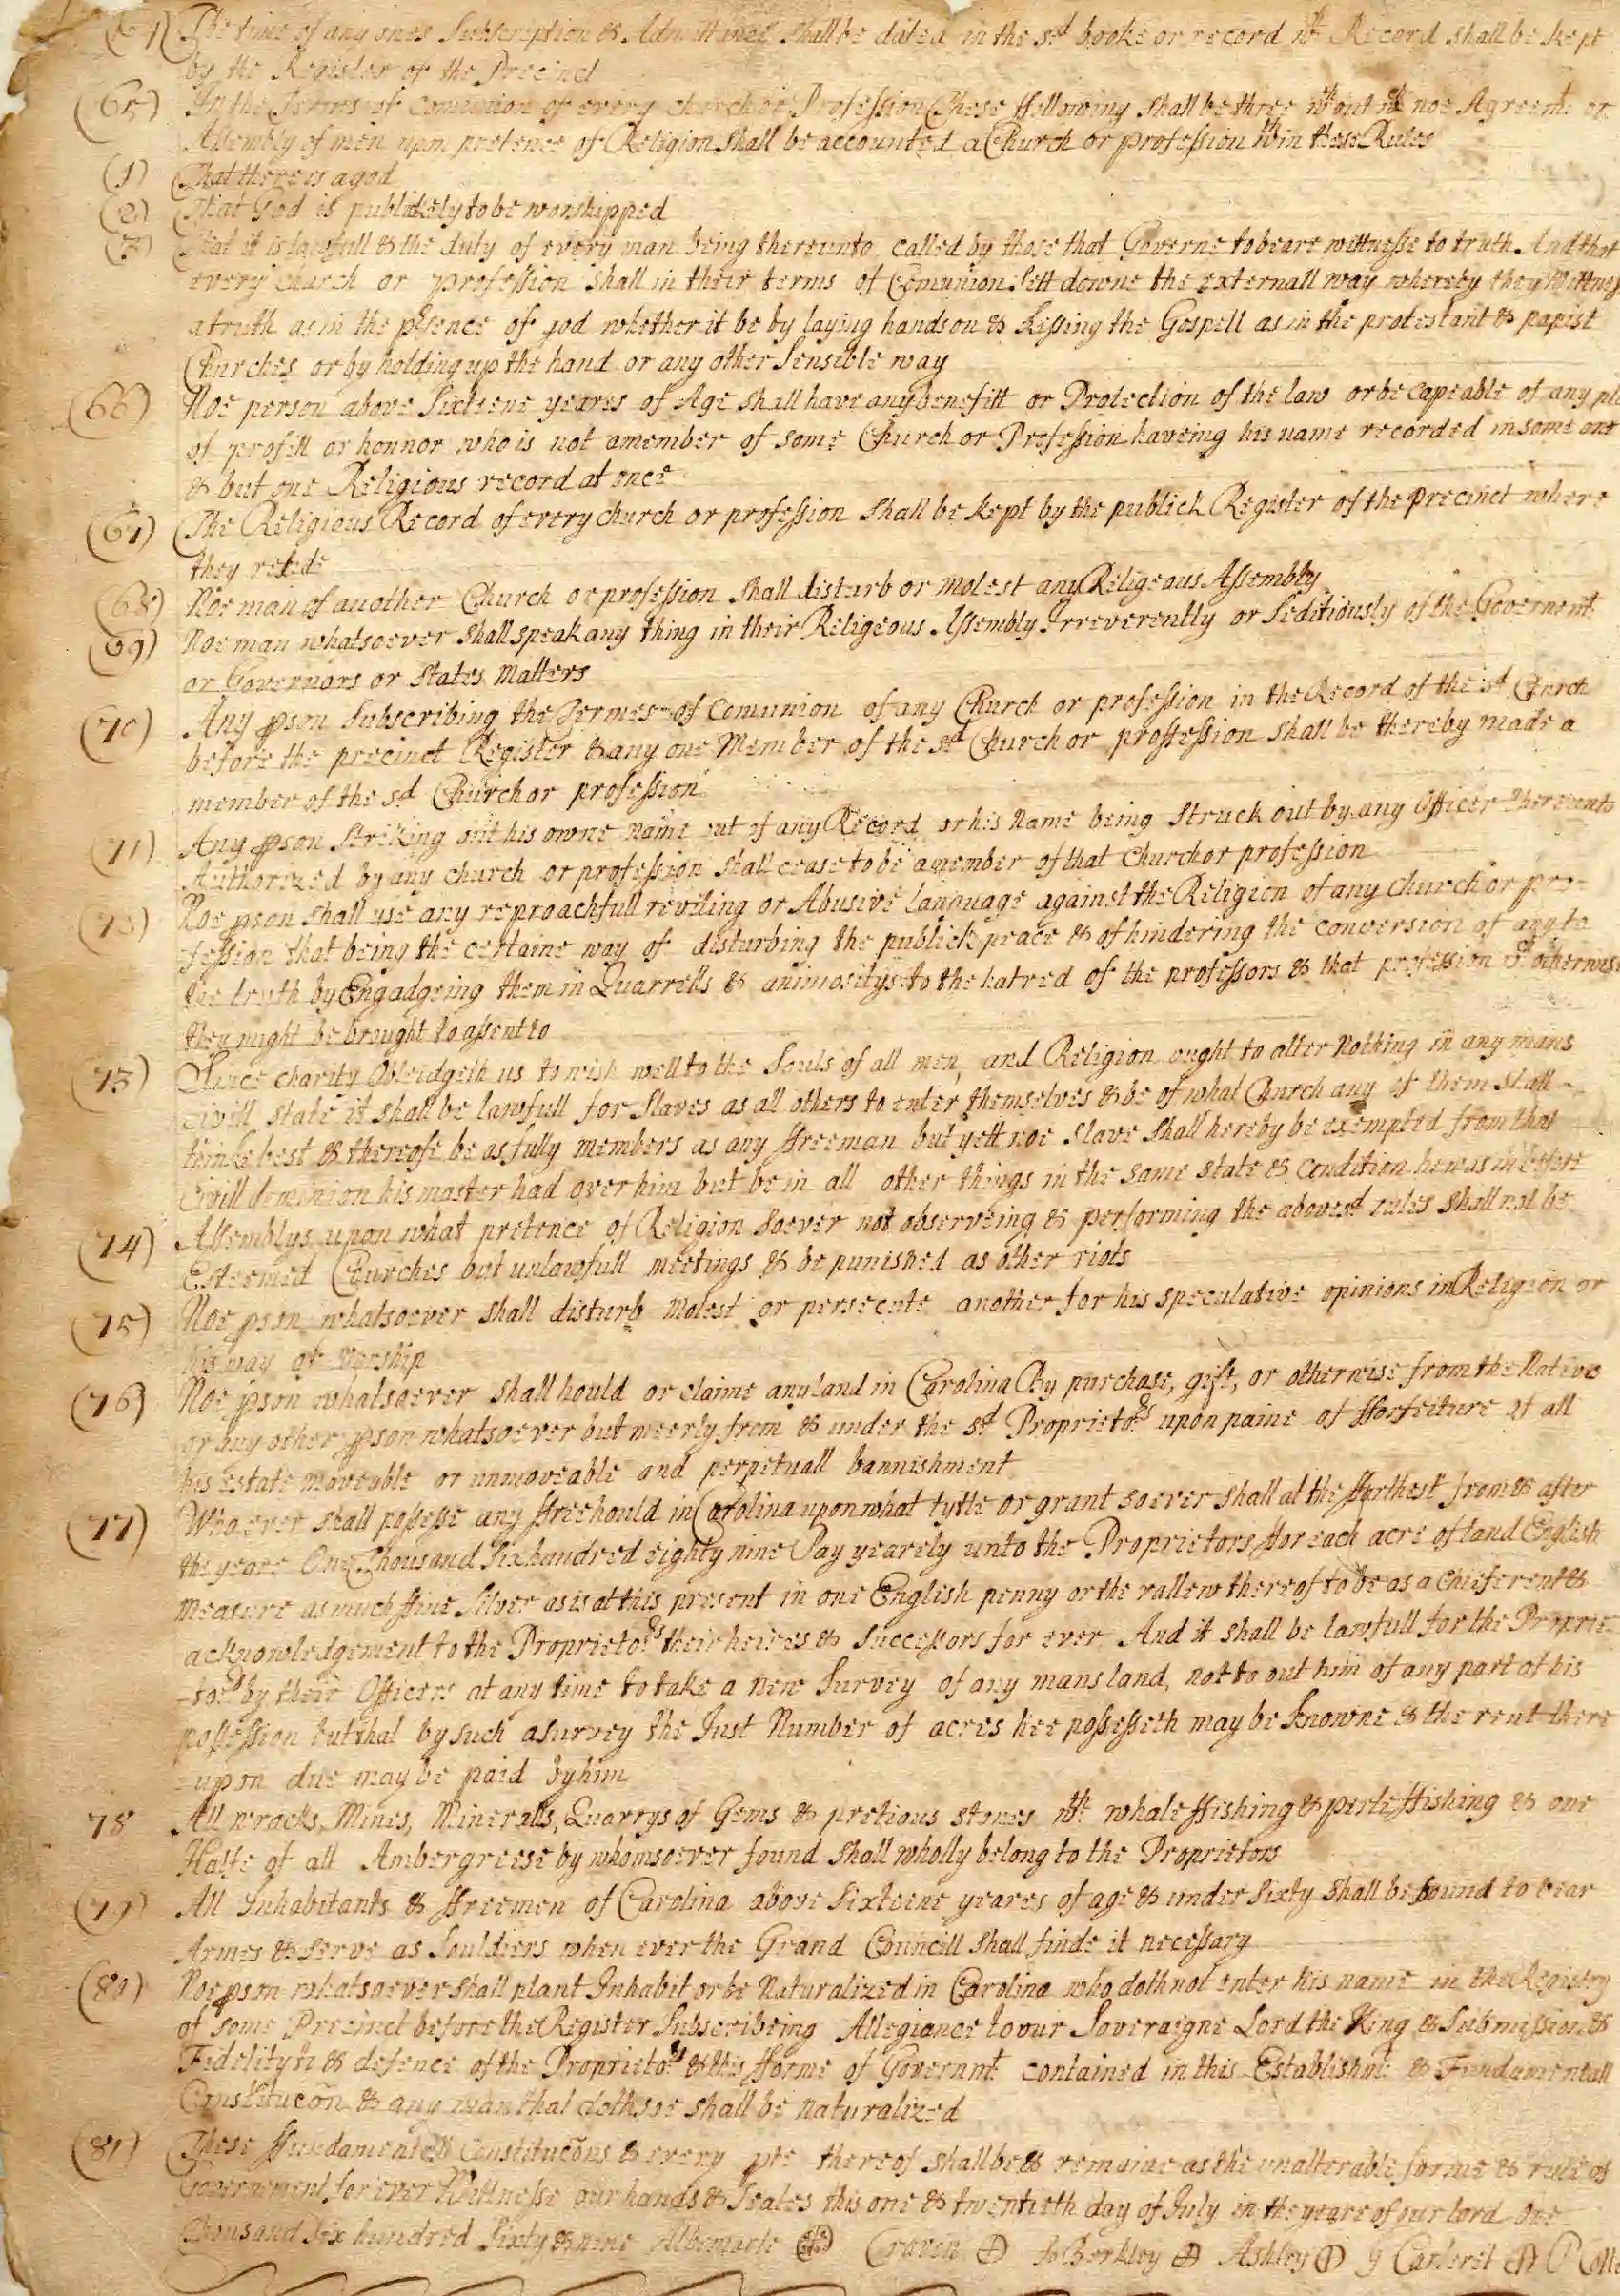 (64) The time of any ones Subscription & Admittance shall be dated in the sd booke or record wch Record shall be kept
by the Register of the Precinct
(65) In the Terms of Comunion of every church or Profession These ffollowing shall be three wthout wch noe Agreemt or
Assembly of men upon pretence of Religion shall be accounted a Church or profession wthin these Rules
(1) That there is a god
(2) That God is publickely to be worshipped
(3) That it is lawfull & the duty of every man being thereunto called by those that Governe to beare wittnesse to truth And that
every church or profession shall in their terms of Comunion Sett downe the externall way whereby they Wittness
a truth as in the psence of god whether it be by laying hands on & kissing the Gospell as in the protestant & papist
Churches or by holding up the hand or any other Sensible way
(66) Noe person above Sixteene yeares of Age shall have any benefitt or Protection of the law or be capeable of any pla
of profitt or honnor who is not a member of some Church or Profession haveing his name recorded in some one
& but one Religious record at once
(67) The Religious Record of every church or profession shall be kept by the publick Register of the Precinct where
they reside
(68) Noe man of another Church or profession shall disturb or molest any Religeous Assembly
(69) Noe man whatsoever shall speak any thing in their Religeous Assembly Irreverently or Seditiously of the Governmt
or Governors or states Matters
(70) Any pson Subscribing the Termes of Comunion of any Church or profession in the Record of the sd Church
before the precinct Register & any one Member of the sd Church or proffession shall be thereby made a
member of the sd Church or profession
(71) Any pson Striking out his owne name out of any Record or his Name being Struck out by any Officer thereunto
Authorized by any church or profession shall cease to be a member of that church or profession
(72) Noe pson shall use any reproachfull reviling or Abusive language against the Religion of any church or pro-
fession that being the certaine way of disturbing the publick peace & of hindering the conversion of any to
the truth by Engadgeing them in Quarrells & animositys to the hatred of the professors & that profession wch otherwise
they might be brought to assent to
(73) Since charity Obleidgeth us to wish well to the Souls of all men, and Religion ought to alter Nothing in any mans
Civill state it shall be lawfull for Slaves as all others to enter themselves & be of what Church any of them shall
thinke best & thereofe be as fully members as any ffreeman but yett noe Slave shall hereby be exempted from that
Civill dominion his master had over him but be in all other things in the same state & condition he was in before
(74) Assemblys upon what pretence of Religion soever not observeing & performing the abovesd rules shall not be
Esteemed Churches but unlawfull meetings & be punished as other riots
(75) Noe pson whatsoever shall disturb Molest or persecute another for his speculative opinions in Religion or
his way of Worship
(76) Noe pson whatsoever shall hould or claime any land in Carolina By purchase, gift, or otherwise from the Natives
or any other pson whatsoever but meerly from & under the sd Proprietors upon paine of fforfeiture of all
his estate moveable or unmoveable and perpetuall bannishment
(77) Whoever shall possesse any ffreehould in Carolina upon what tytle or grant soever shall at the ffarthest from & after
the yeare One Thousand Six hundred eighty nine Pay yearely unto the Proprietors ffor each acre of land English
Measure as much ffine Silver as is at this present in one English penny or the vallew thereof to be as a chiefe rent &
acknowledgement to the Proprietors their heires & Successors for ever And it shall be lawfull for the Proprie-
-tors by their Officers at any time to take a New Survey of any mans land, not to out him of any part of his
possession but that by such a survey the Just Number of acres hee possesseth may be knowne & the rent there
-upon due may be paid by him
78 All wracks, Mines, Mineralls, Quarrys of Gems & pretious stones wth whale ffishing & perle ffishing & one
Halfe of all Ambergreese by whomsoever found shall wholly belong to the Proprietors
(79) All Inhabitants & ffreemen of Carolina above Sixteene yeares of age & under Sixty shall be bound to bear
Armes & serve as Souldiers when ever the Grand Councill shall finde it necessary
(80) Noe pson whatsoever shall plant Inhabit or be Naturalized in Carolina who doth not enter his name in the Registry
of some Precinct before the Register Subscribeing Allegiance to our Soveraigne Lord the King & Submission &
Fidelity to & defence of the Proprietors & this fforme of Governmt contained in this Establishmt & Fundamentall
Constitucõn & any man that doth soe shall be Naturalized
(81) These ffundamentall Constitucõns & every pte thereof shall be & remaine as the unalterable forme & rule of
Government for ever Wittnesse our hands & Seales this one & twentieth day of July in the yeare of our lord One
Thousand Six hundred Sixty & nine Albemarle Craven Jo Berkley Ashley G Carteret P Colle